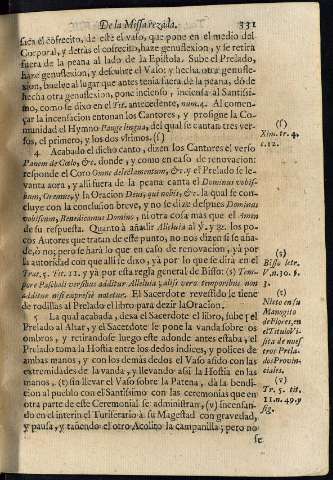 De la Missa rezada. 331
saca el cofrecito, de este el vaso, que pone en el medio del
Corporal, y detràs el cofrecito, haze genuflexion, y se retira
fuera de la peana al lado de la Epistola. Sube el Prelado,
haze genuflexion, y descubre el Vaso; y hecha otra genufle-
xion, buelve al lugar que antes tenia fuera de la peana, dò-
hecha otra genuflexion, pone incienso, inciensa al Santissi-
mo, como se dixo en el Tit. antecedente, num. 4. Al comen-
çar la incensation entonan los Cantores, y prosigue la Co-
munidad el Hymno Pange lingua, del qual se cantan tres ver-
sos, el primero, y los dos vltimos. (s)
4 Acabado el dicho canto, dizen los Cantores el verso
Panem de Cœlo, &c. donde, y como en caso de renovacion:
responde el Coro Omne delectamentum, &c. y el Prelado se le-
vanta aora, y alli fuera de la peana canta el Dominus vobis-
cum, Oremus, y la Oracion Deus, qui nobis, &c. la qual se con-
cluye con la conclusion breve, y no se dize despues Dominus
vobiscum, Benedicamus Domino, ni otra cosa mas que el Amen
de su respuesta. Quanto à añadir Alleluia al ℣. y ℟. los po-
cos Autores que tratan de este punto, no nos dizen si se aña-
de, ò no; pero se harà lo que en caso de renovacion, yà por
la autoridad con que alli se dixo, yà por lo que se dirà en el
Trat. 5. Tit. 11. y yà por esta regla general de Bisso: (t) Tem-
pore Paschali versibus additur Alleluia; alijs vero temporibus non
additur nisi expresse notetur. El Sacerdote revestido le tiene
de rodillas al Prelado el libro para dezir la Oracion.
5 La qual acabada, dexa el Sacerdote el libro, sube el
Prelado al Altar, y el Sacerdote le pone la vanda sobre los
ombros, y retirandose luego este adonde antes estaba, el
Prelado toma la Hostia entre los dedos indices, y polices de
ambas manos, y con los demàs dedos el Vaso asido con las
extremidades de la vanda, y llevando assi la Hostia en las
manos, (t) sin llevar el Vaso sobre la Patena, dà la bendi-
cion al pueblo con el Santissimo con las ceremonias que en
otra parte de este Ceremonial se administran, (v) incensan-
do en el interin el Turiferario à su Magestad con gravedad,
y pausa, y tañendo el otro Acolito la campanilla; pero no
se
(s)
Xim. tr. 4.
c. 12.
(t)
Bisso letr.
V. n. 30. §.
3.
(t)
Nieto en su
Manogito
de Flores, en
el Titulo V
sita de nues
tros Prela-
dos Provin-
ciales.
(v)
Tr. 5. tit.
11. n. 49. y
sig.